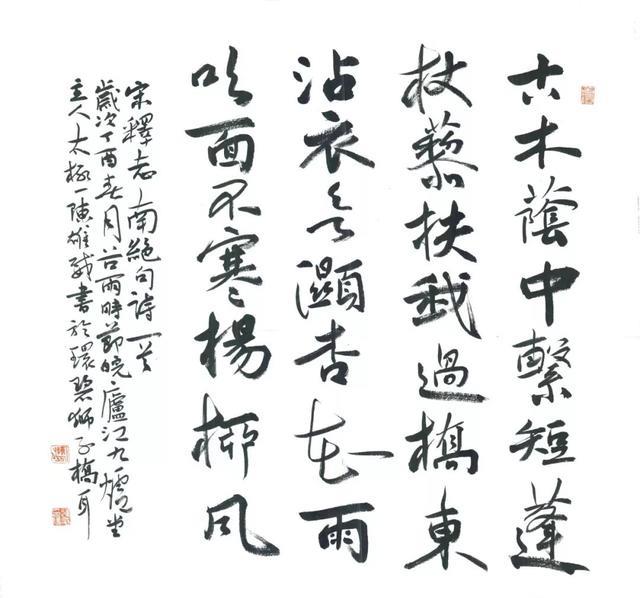 古木蔭中繫短蓬
杖藜扶我過橋東
沾衣欲濕杏花雨
吹面不寒楊柳風
宋釋志南絕句詩一首
歲次丁酉春月谷雨時節皖廬江九爐堂
主人太極陳雄書於環碧獅子橋耳